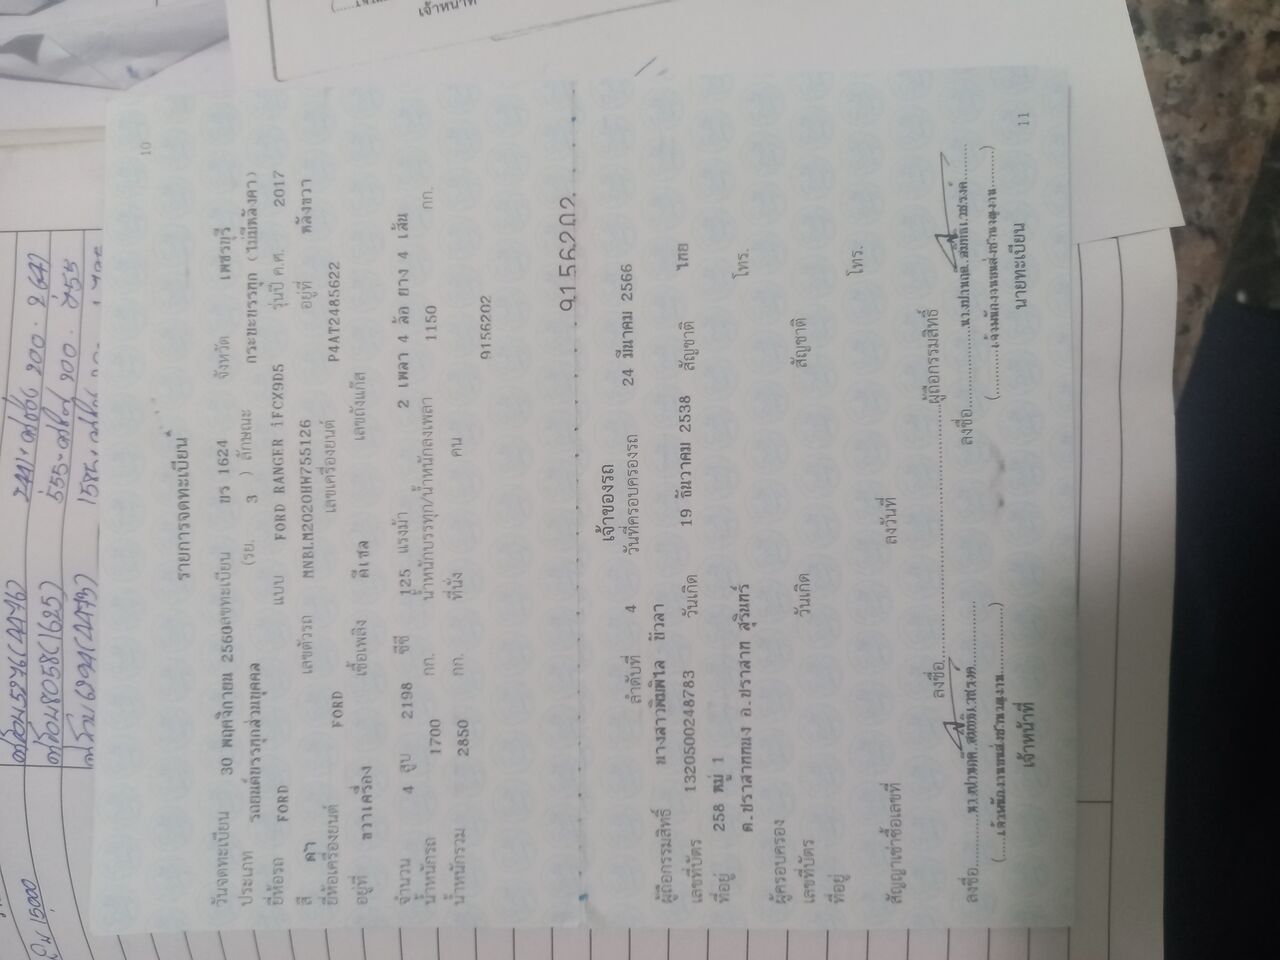 10
รายการจดทะเบียน
วันจดทะเบียน 30 พฤศจิกายน 2560 เลขทะเบียน ขร 1624 จังหวัด เพชรบุรี
ประเภท รถยนต์บรรทุกส่วนบุคคล (รย. 3 ) ลักษณะ กระบะบรรทุก (ไม่มีหลังคา)
ยี่ห้อรถ FORD แบบ FORD RANGER iFCX9D5 รุ่นปี ค.ศ. 2017
สี ดำ เลขตัวรถ MNBLM2020HW755126 อยู่ที่ หลังขวา
ยี่ห้อเครื่องยนต์ FORD เลขเครื่องยนต์ P4AT2485622
อยู่ที่ ขวาเครื่อง เชื้อเพลิง ดีเซล เลขถังแก๊ส
จำนวน 4 สูบ 2198 ซีซี 125 แรงม้า 2 เพลา 4 ล้อ ยาง 4 เส้น
น้ำหนักรถ 1700 กก. น้ำหนักบรรทุก/น้ำหนักลงเพลา 1150 กก.
น้ำหนักรวม 2850 กก. ที่นั่ง คน
9156202
9156202
เจ้าของรถ
ลำดับที่ 4 วันที่ครอบครองรถ 24 มีนาคม 2566
ผู้ถือกรรมสิทธิ์ นางสาวพิมพิไล
เลขที่บัตร 1320500248783 วันเกิด 19 ธันวาคม 2538 สัญชาติ ไทย
ที่อยู่ 258 หมู่ 1 โทร.
ต.ปราสาททนง อ.ปราสาท สุรินทร์
ผู้ครอบครอง
เลขที่บัตร วันเกิด สัญชาติ
ที่อยู่ โทร.
สัญญาเช่าซื้อเลขที่ ลงวันที่
ลงชื่อ ผู้ถือกรรมสิทธิ์
ลงชื่อ ลงชื่อ
เจ้าหน้าที่ นายทะเบียน
11
เจ้าหน้าที่
15000